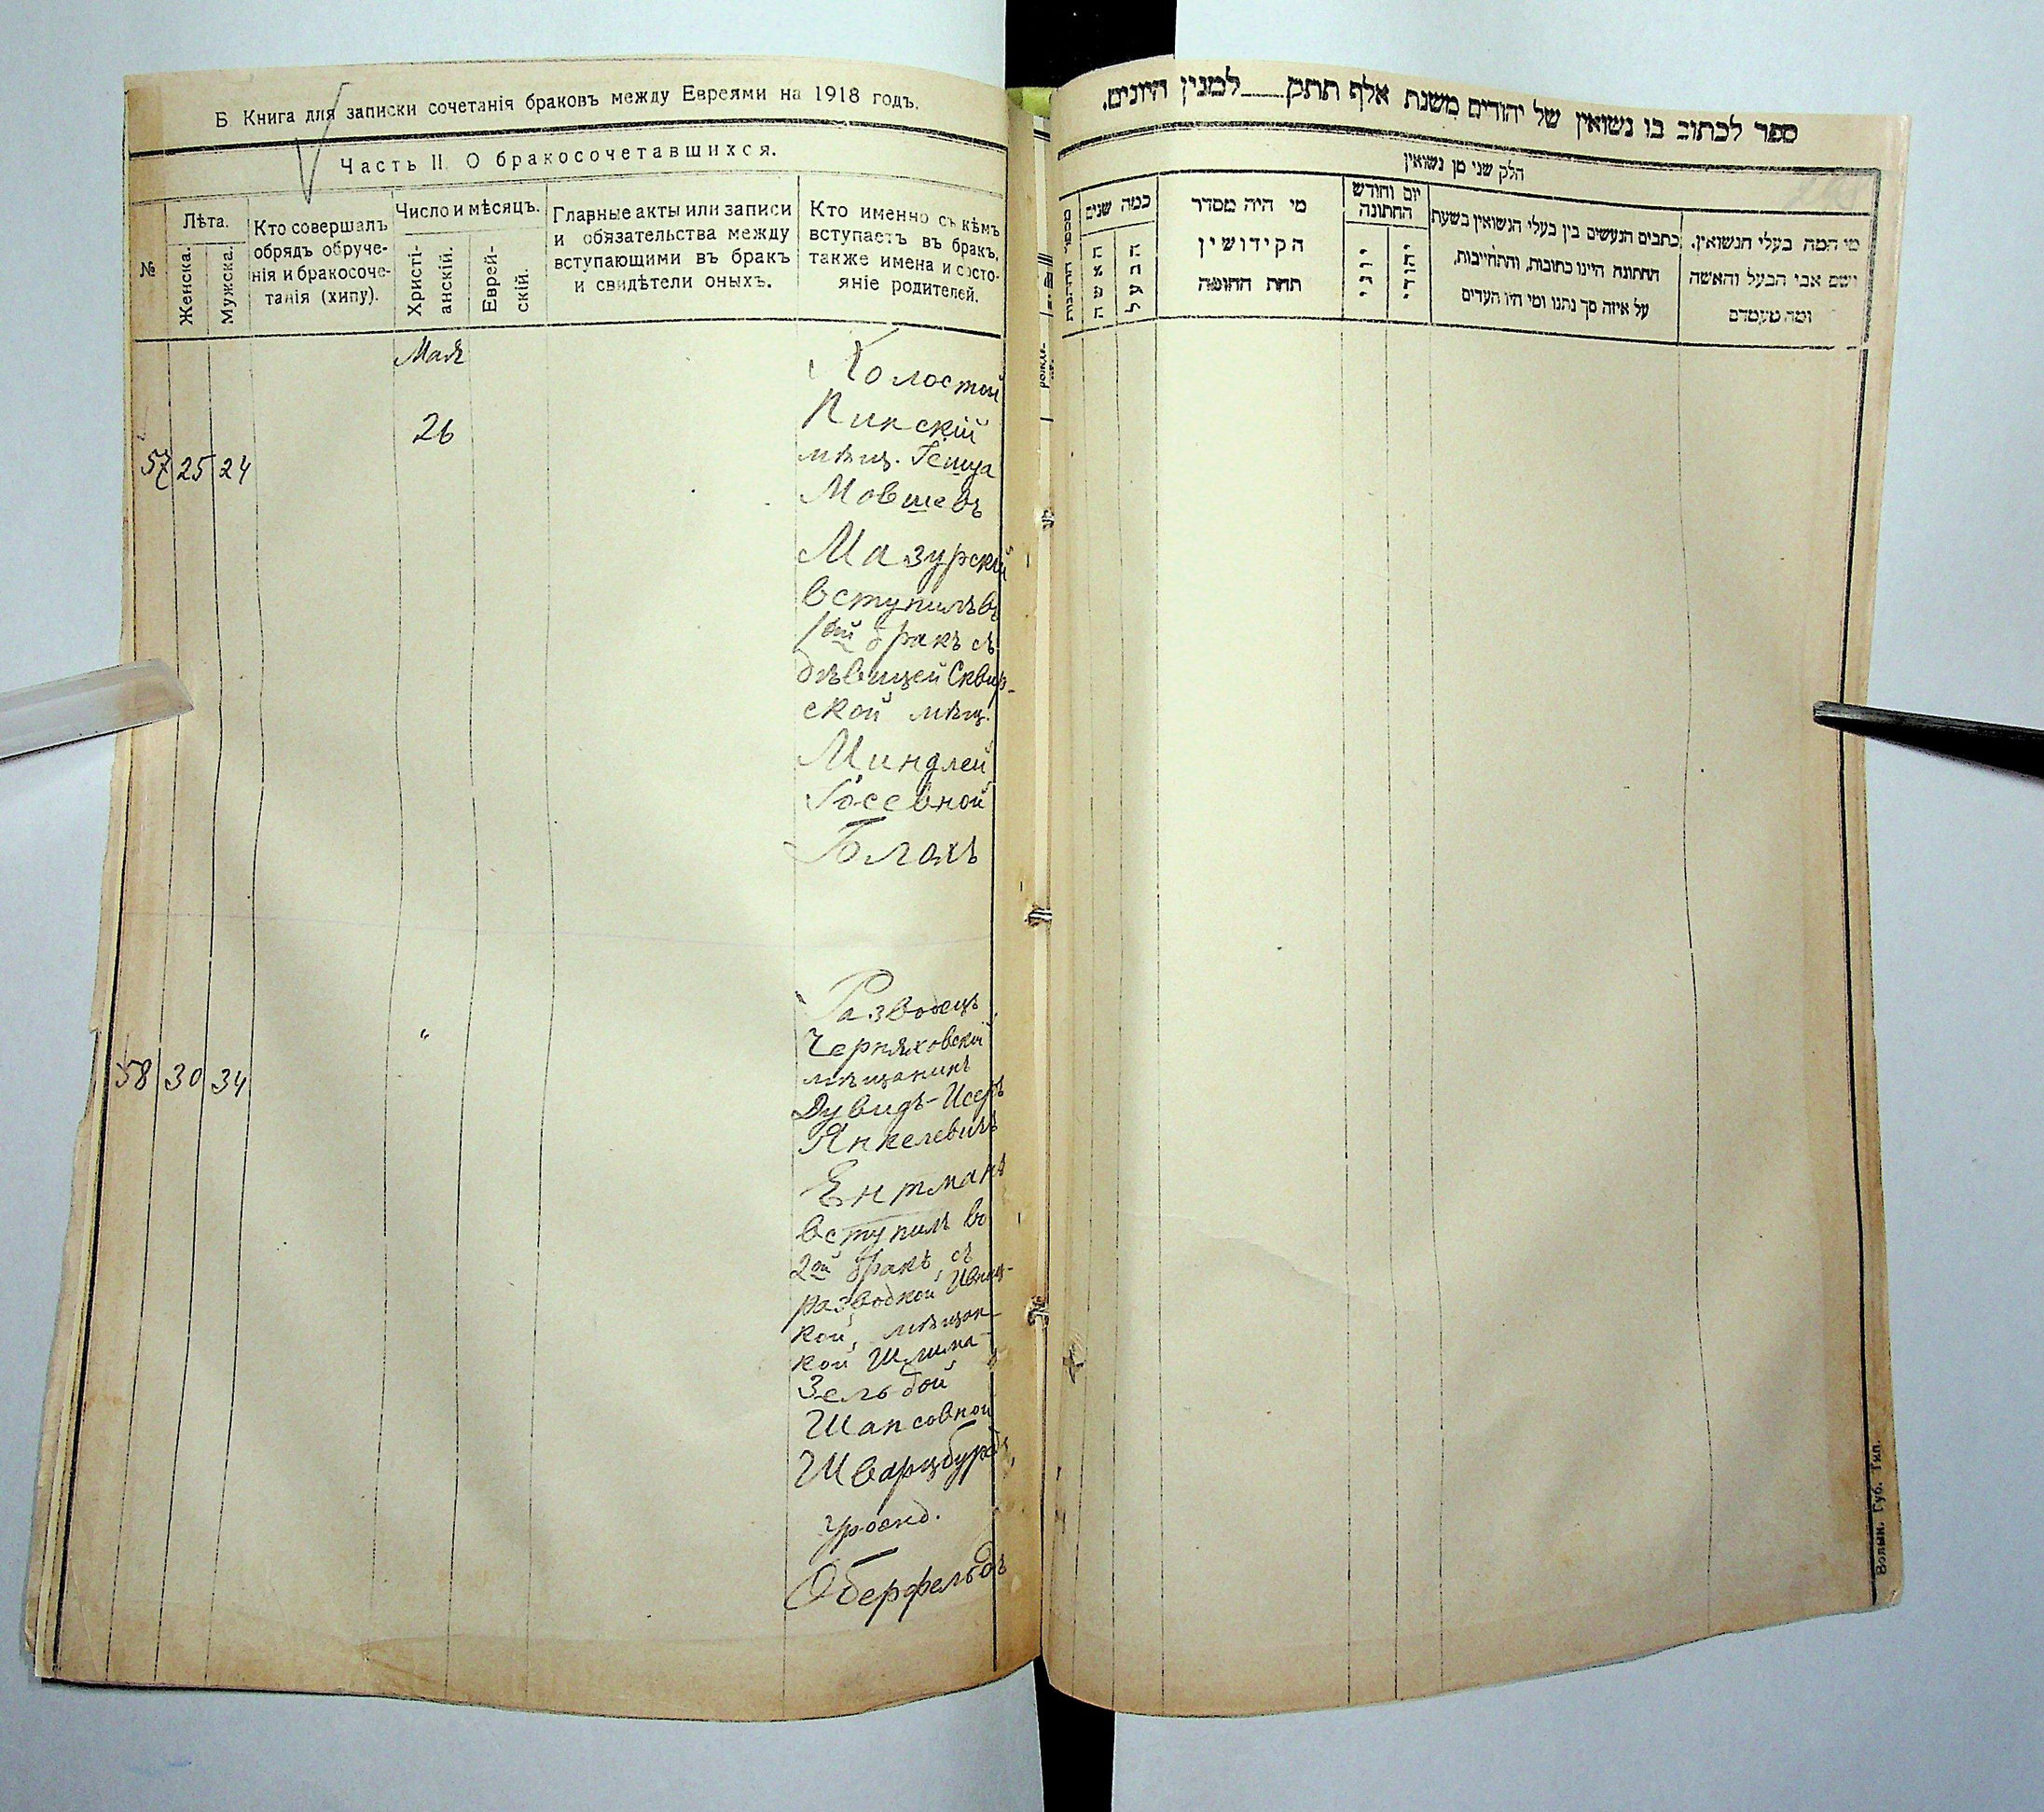 Б. Книга для записки сочетанія браковъ между Евреями на 1918 годъ.
Часть II. О бракосочетавшихся.
№
Лѣта.
Женска.
Мужска.
Кто совершалъ
обрядъ обруче-
нія и бракосоче-
танія (хипу).
Число и мѣсяцъ.
Христі-
анскій.
Еврей-
скій.
Главные акты или записи
и обязательства между
вступающими въ бракъ
и свидѣтели оныхъ.
Кто именно съ кѣмъ
вступаетъ въ бракъ,
также имена и состо-
яніе родителей.
Мая
26
57 25 24
Холостой
Пинскій
мѣщ.
Мовшевъ
Мазурскій
вступилъ въ
1ый бракъ съ
дѣвицей Сквир-
ской мѣщ.
Миндлей
Іосевной
Блохъ
58 30 34
"
Разводецъ
Черняховскій
мѣщанинъ
Дувидъ-Исеръ
Янкелевичъ
Ентманъ
вступилъ во
2ой бракъ съ
разводкой Ивниц-
кой, мѣщан-
кой Шлима-
Зельдой
Шапсовной
Шварцбурдъ,
урожд.
Оберфельдъ
ספר לכתוב בו נשואין של יהודים משנת אלף תתקן למנין היונים.
חלק שני מן נשואין
מי המה בעלי הנשואין,
ושם אבי הבעל והאשה
ומה מעמדם
כתבים הנעשים בין בעלי הנשואין בשעת
החתונה היינו כתובות, והתחייבות,
על איזה סך נתנו ומי היו העדים
יום וחודש
החתונה
יהודי
יוני
מי היה מסדר
הקידושין
תחת החופה
כמה שנים
הבעל
האשה
מספר החתונות
Волын. Губ. Тип.